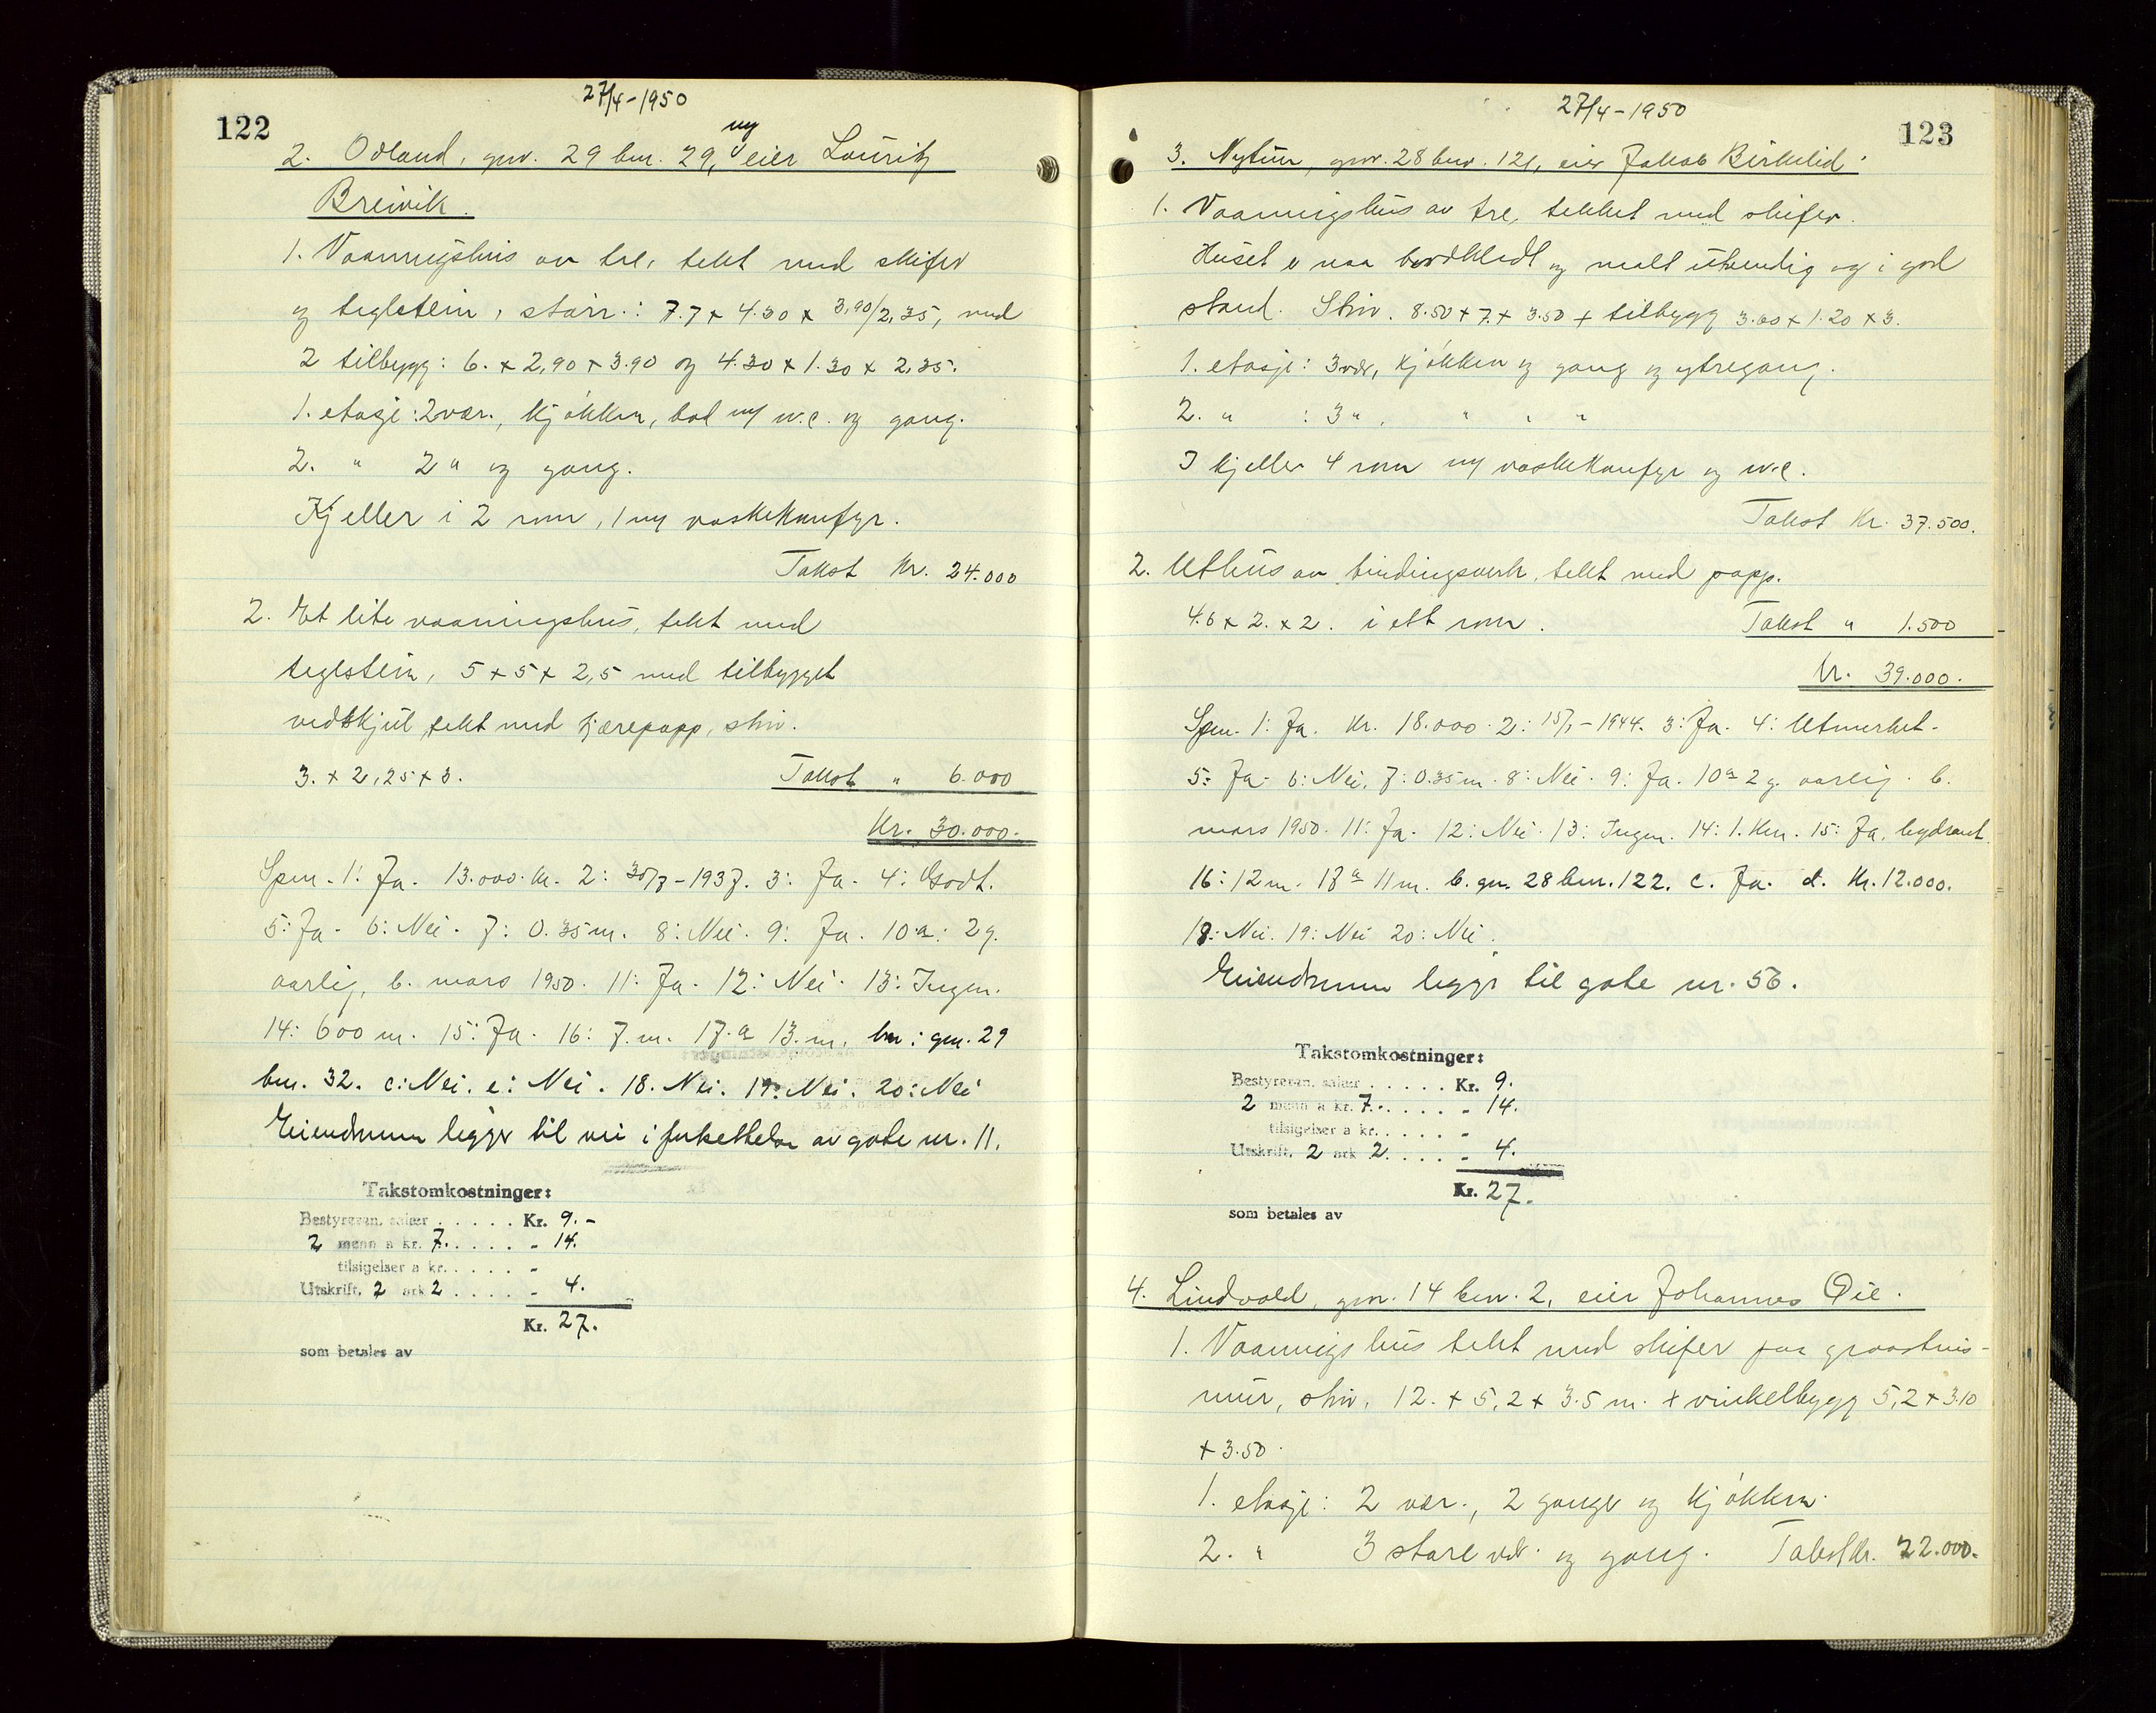 122
27/4-1950
2. Odland, gnr. 29 bnr. 29, ny eier Lauritz
Breivik.
1. Vaaningshus av tre, tekt med skifer
og teglstein, størr.: 7.7 x 4.30 x 3,90/2,35, med
2 tilbygg: 6. x 2,90 x 3.90 og 4.30 x 1.30 x 2,35.
1. etasje: 2 vær., kjøkken, bad m/ w.c. og gang.
2. " 2 " og gang.
Kjeller i 2 rum, 1 m/ vaskekomfyr.
Takst Kr. 24.000
2. Et lite vaaningshus, tekt med
teglstein, 5 x 5 x 2,5 med tilbygget
vedskjul tekt med tjærepapp, stør.
3. x 2,25 x 3.
Takst " 6.000
Kr. 30.000.
Spm. 1: Ja. 13.000 kr. 2: 30/7-1937. 3: Ja. 4: Godt.
5: Ja. 6: Nei. 7: 0.35 m. 8: Nei. 9: Ja. 10.a: 2 g.
aarlig, b. mars 1950. 11: Ja. 12: Nei. 13: Ingen.
14: 600 m. 15: Ja. 16: 7.m. 17.a 13.m. gnr. 29
bnr. 32. c: Nei. e: Nei. 18. Nei. 19: Nei. 20: Nei
Eiendommen ligger til vei i forkettelse av gate nr. 11.
Takstomkostninger:
Bestyreren, salær ..... Kr. 9.-
2 menn a kr. 7...... - 14.
tilsigelser a kr..... -
Utskrift, 2 ark 2 .... - 4.
Kr. 27.
som betales av
27/4-1950
123
3. Nytun, gnr. 28 bnr. 121, eier Jakob Birkelid.
1. Vaaningshus av tre, tekket med skifer.
Huset er naa bordkledt og malt utvendig og i god
stand. Stør. 8.50 x 7. x 3.50 + tilbygg 3.60 x 1.20 x 3.
1. etasje: 3 vær, kjøkken og gang og ytregang.
2. " : 3 ", " , "
I kjeller 4 rum m/ vaskekomfyr og w.c.
Takst Kr. 37.500.
2. Uthus av bindingsverk, tekt med papp.
4.6 x 2. x 2. i ett rum.
Takst " 1.500
Kr. 39.000.
Spm. 1: Ja. Kr. 18.000. 2: 1944. 3: Ja. 4: Utmerket.
5: Ja. 6: Nei. 7: 0.35 m. 8: Nei. 9: Ja. 10a 2 g. aarlig. b.
mars 1950. 11: Ja. 12: Nei. 13: Ingen. 14: 1. km. 15: Ja, hydrant.
16: 12 m. 17a 11 m. b. gn. 28 bnr. 122. c. Ja. d. Kr. 12.000.
18: Nei. 19: Nei 20: Nei.
Eiendommen ligger til gate nr. 56.
Takstomkostninger:
Bestyreren, salær ..... Kr. 9.
2 menn a kr. 7...... - 14.
tilsigelser a kr..... -
Utskrift, 2 ark 2 .... - 4.
Kr. 27.
som betales av
4. Lindvold, gnr. 14 bnr. 2, eier Johannes Øie.
1. Vaaningshus tekt med skifer paa graastens-
mur, stør. 12. x 5,2 x 3.5 m. + vinkelbygg 5,2 x 3.10
x 3.50.
1. etasje: 2 vær., 2 ganger og kjøkken.
2. " 3 store vær. og gang. Takst Kr. 22.000.